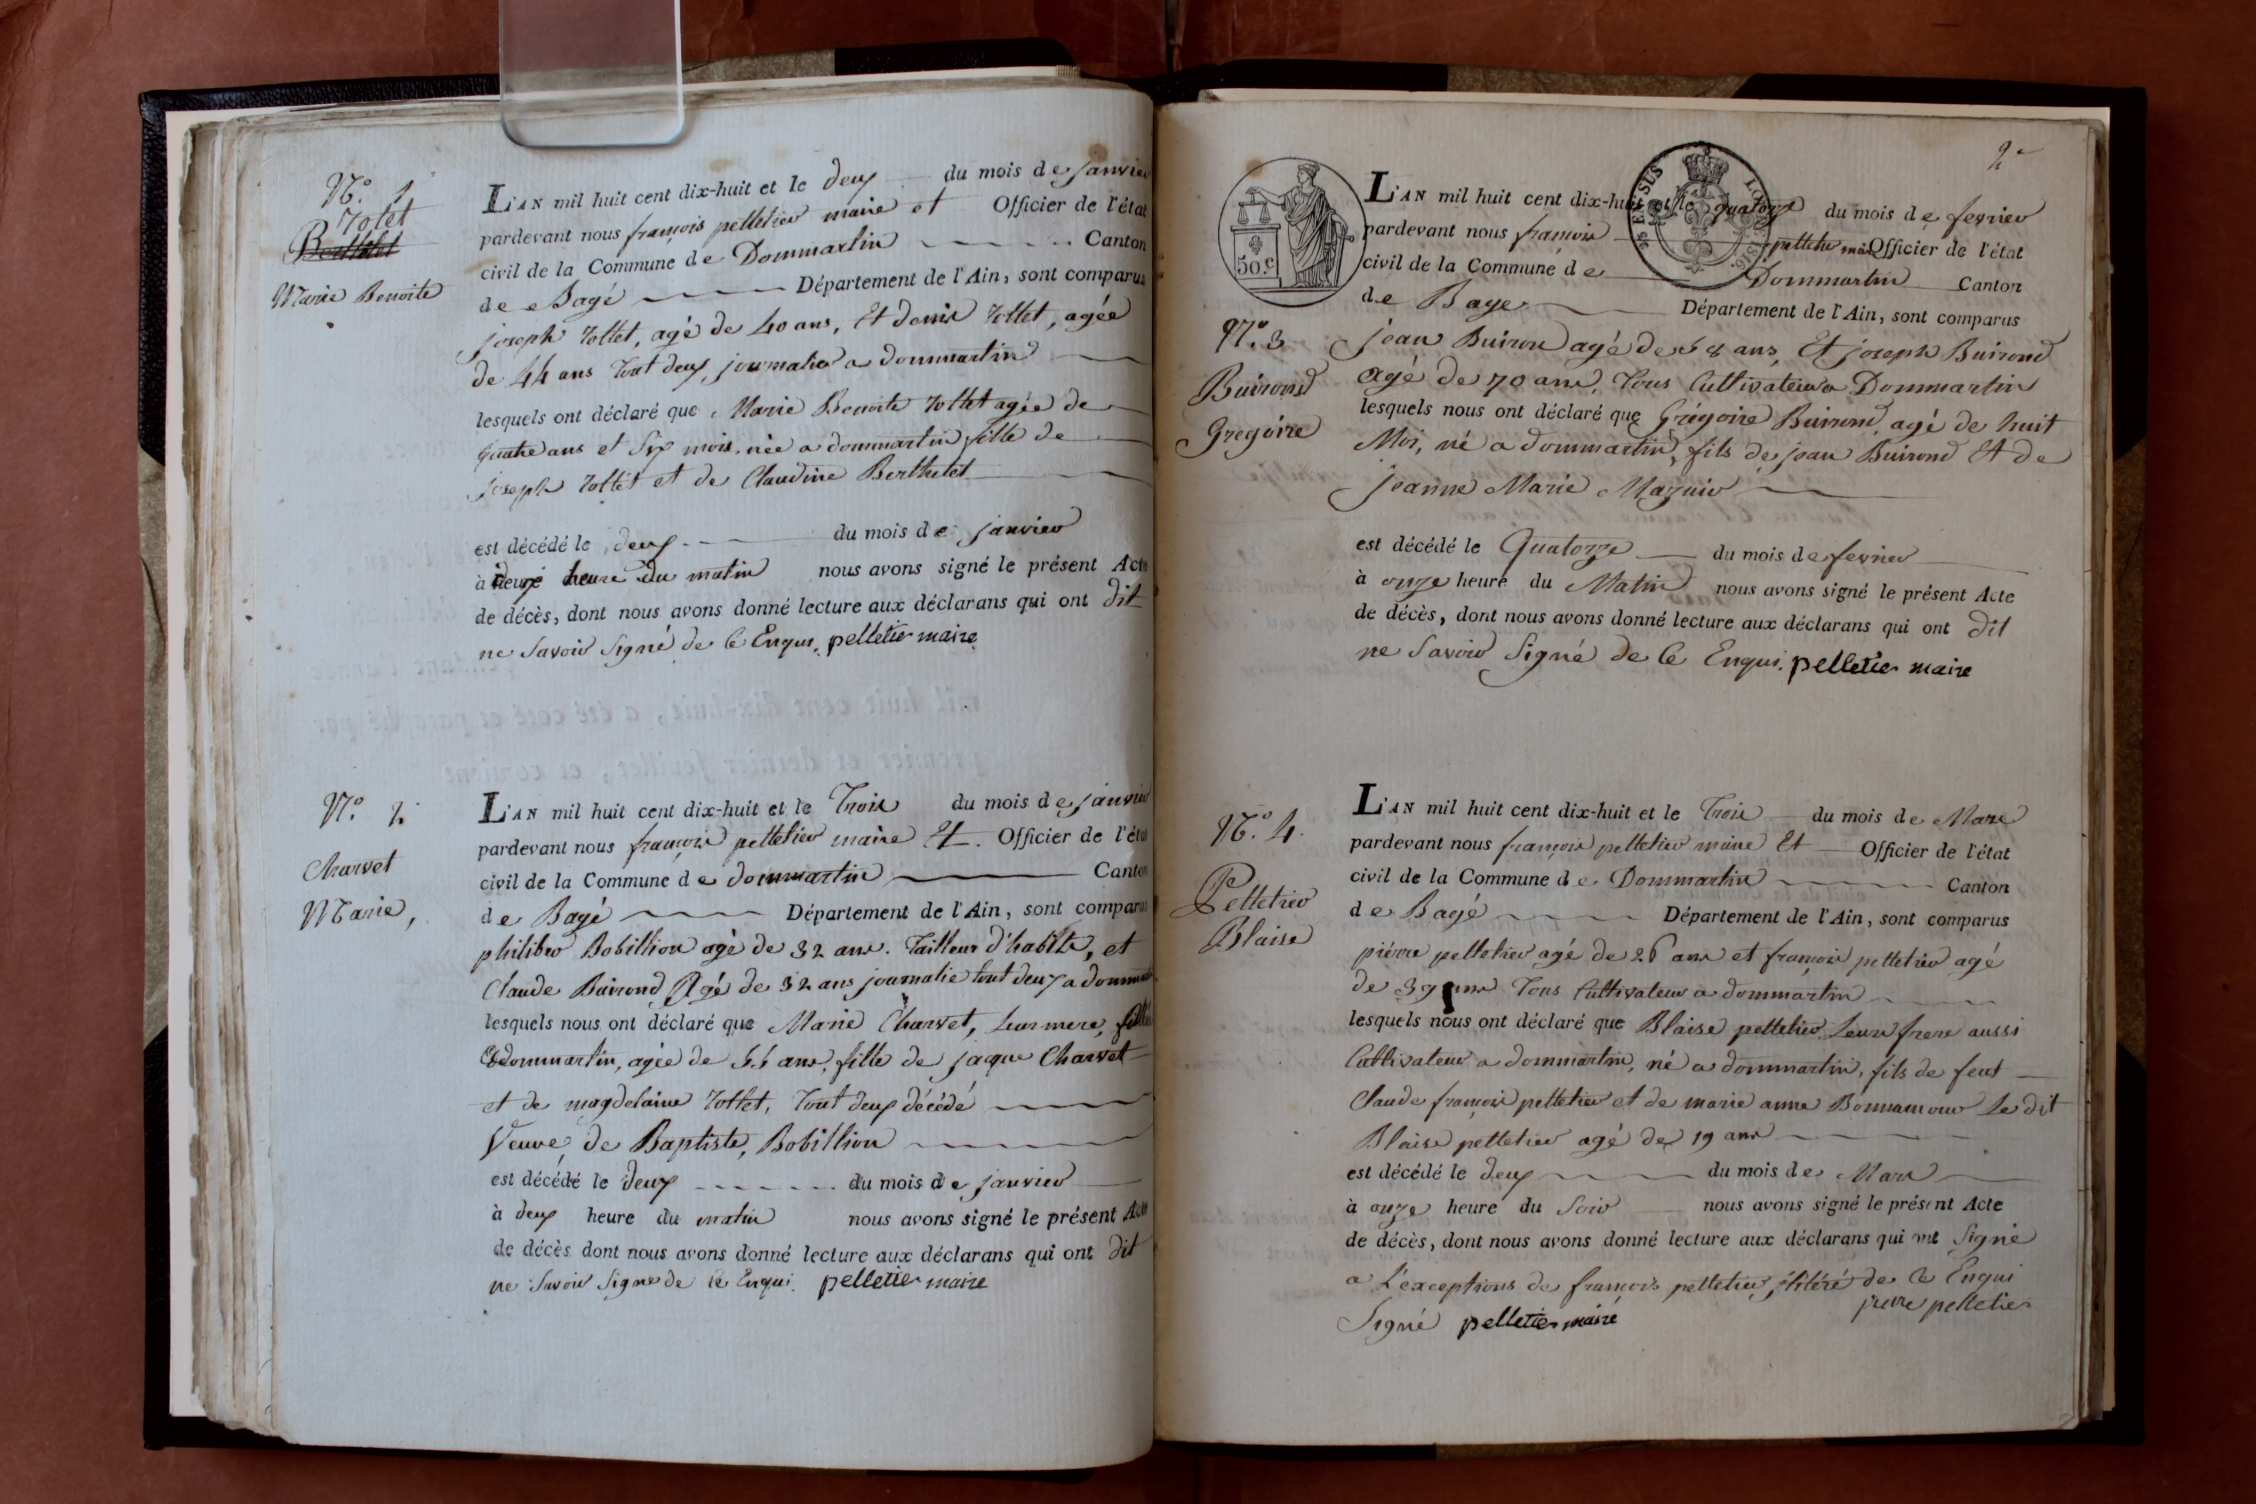 N.º 1
Tolet
Berthelet
Marie Benoite
L'AN mil huit cent dix-huit et le deux du mois de janvier
pardevant nous françois pelletier maire et Officier de l'état
civil de la Commune de Dommartin Canton
de Bagé Département de l'Ain, sont comparus
joseph Tollet, agé de 40 ans, Et denis Tollet, agée
de 44 ans tout deux journalier a dommartin
lesquels ont déclaré que Marie Benoite Tollet agée de
quatre ans et Six mois, née a dommartin fille de
joseph Tollet et de Claudine Berthelet
est décédé le deux du mois de janvier
à heure du matin nous avons signé le présent Acte
de décès, dont nous avons donné lecture aux déclarans qui ont dit
ne Savoir Signé de Ce Enquis. pelletier maire
N.º 2.
Charvet
Marie,
L'AN mil huit cent dix-huit et le Trois du mois de janvier
pardevant nous françois pelletier maire Et. Officier de l'état
civil de la Commune de dommartin Canton
de Bagé Département de l'Ain, sont comparus
philiber Bobillion agé de 32 ans. Tailleur d'habits, et
Claude Buirond Agé de 32 ans journalie tout deux a dommar
lesquels nous ont déclaré que Marie Charvet, leur mere,
dommartin, agée de 55 ans, fille de jaque Charvet
et de magdelaine Tollet, Tout deux décédé
Veuve, de Baptiste, Bobillion
est décédé le deux du mois de janvier
à deux heure du matin nous avons signé le présent Acte
de décès dont nous avons donné lecture aux déclarans qui ont dit
ne Savoir Signer de ce Enqui. pelletier maire
2e
50. c
L'AN mil huit cent dix-huit et le quatorze du mois de fevrier
pardevant nous françois pelletier maire Officier de l'état
civil de la Commune de Dommartin Canton
de Bage Département de l'Ain, sont comparus
N.º 3
Buirond
Gregoire
jean Buirond agé de 58 ans, Et joseph Buirond
agé de 70 ans, Tous Cultivateur a Dommartin
lesquels nous ont déclaré que Grégoire Buirond, agé de huit
Moi, né a dommartin, fils de jean Buirond Et de
jeanne Marie Magnin
est décédé le Quatorze du mois de fevrier
à onze heure du Matin nous avons signé le présent Acte
de décès, dont nous avons donné lecture aux déclarans qui ont dit
ne Savoir Signé de Ce Enqui. pelletier maire
N.º 4.
Pelletier
Blaise
L'AN mil huit cent dix-huit et le Trois du mois de Mars
pardevant nous françois pelletier maire Et Officier de l'état
civil de la Commune de Dommartin Canton
de Bagé Département de l'Ain, sont comparus
piérre pelletier agé de 26 ans et françois pelletier agé
de 39 ans Tous Cultivateur a dommartin
lesquels nous ont déclaré que Blaise pelletier Leur frere aussi
Cultivateur a dommartin, né a dommartin, fils de feut
Claude françois pelletier et de marie anne Bonnamour Le dit
Blaise pelletier agé de 19 ans
est décédé le deux du mois de Mars
à onze heure du Soir nous avons signé le présent Acte
de décès, dont nous avons donné lecture aux déclarans qui ont Signé
a L'exceptions de françois pelletier, illitéré de Ce Enqui
Signé pelletier maire pierre pelletier